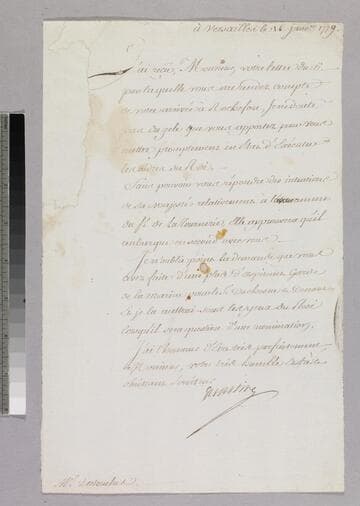 à Versailles le 16 janv.er 1779.
J'ai reçu, Monsieur, votre lettre du 6.
par laquelle vous me rendez compte
de votre arrivée à Rochefort. Je ne doute
pas du zèle que vous apportez pour vous
mettre promptement en état d'exécuter
les ordres du Roi.
Sans pouvoir vous répondre des intentions
de Sa Majesté relativement à
du S. de la Elle approuvera qu'il
embarque en second avec vous.
Je n'oublie point la demande que vous
avez faite d'une place d'
de la marine pour le
et je la mettrai sous les yeux du Roi
lorsqu'il sera question d'une nomination.
J'ai l'honneur d'être très parfaitement,
Monsieur, votre très humble et très
obéissant serviteur
De Sartine
Mr.